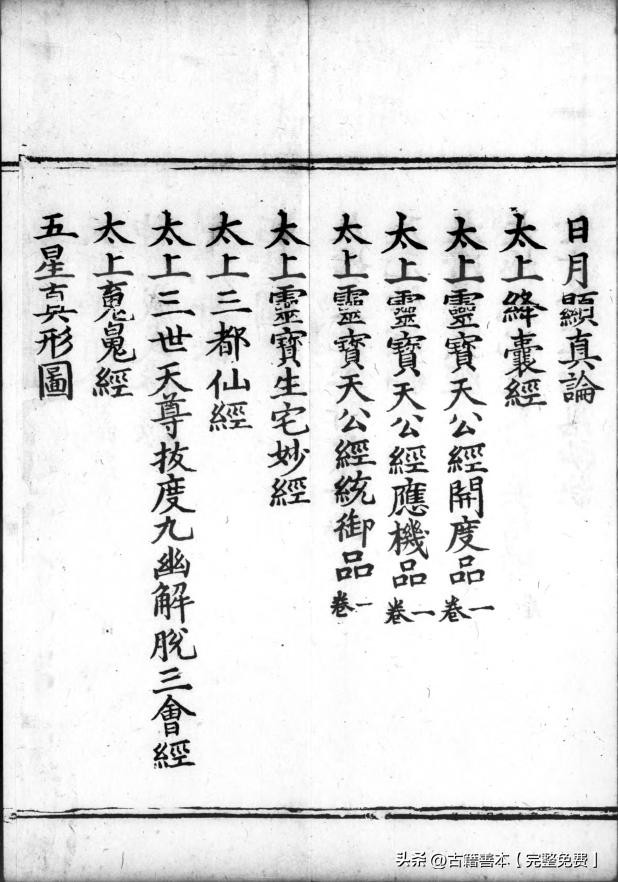 日月顯真論
太上絳囊經
太上靈寶天公經開度品一卷
太上靈寶天公經應機品一卷
太上靈寶天公經統御品一卷
太上靈寶生宅妙經
太上三都仙經
太上三世天尊拔度九幽解脫三會經
太上經
五星真形圖
头条 @古籍善本【完整免费】